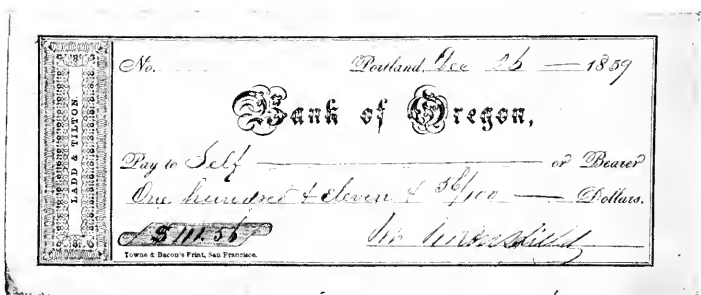 LADD & TILTON.
No. Portland, Dec 26 1859
Bank of Oregon,
Pay to Self or Bearer
One hundred & eleven & 56/100 Dollars.
$ 111.56
Towne & Bacon's Print, San Francisco.